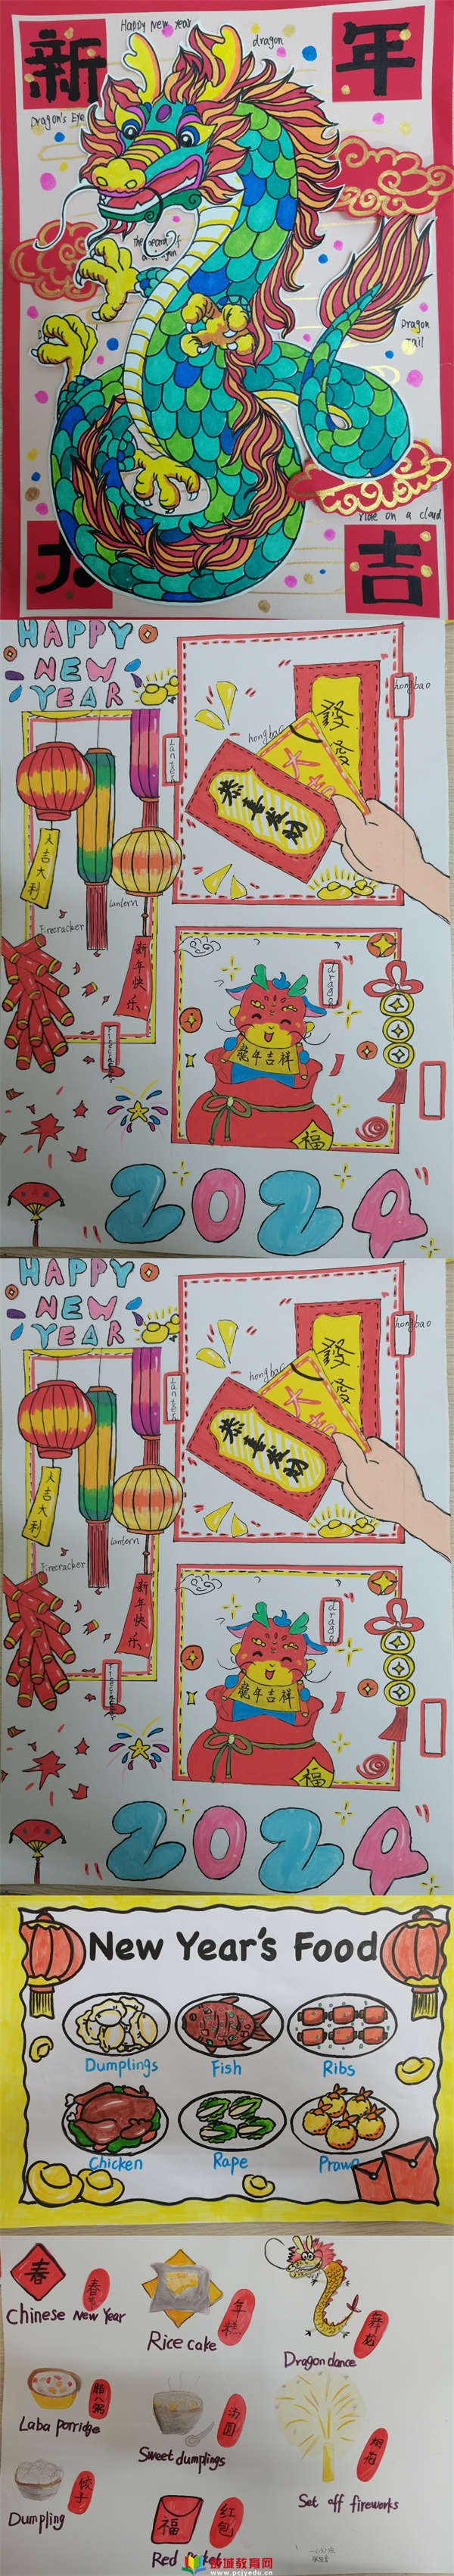 新
Happy New Year
dragon
年
Dragon's Eye
Dragon
tail
ride on a cloud
大
吉
HAPPY
NEW
YEAR
hongbao
hongbao
發
發
大
大吉大利
Firecracker
lantern
新年快乐
龍年吉祥
福
2024
HAPPY
NEW
YEAR
hongbao
hongbao
發
發
大
大吉大利
Firecracker
lantern
新年快乐
龍年吉祥
福
2024
New Year's Food
Dumplings
Fish
Ribs
Chicken
Rape
Prawn
春
春节
Chinese New Year
年糕
Rice cake
舞龙
Dragon dance
腊八粥
Laba porridge
汤圆
Sweet dumplings
烟花
Set off fireworks
饺子
Dumpling
福
红包
Red
城教育网
www.pcjyedu.cn